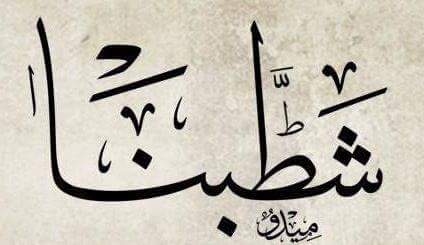 شَطَّبْنَا
مِيدُو